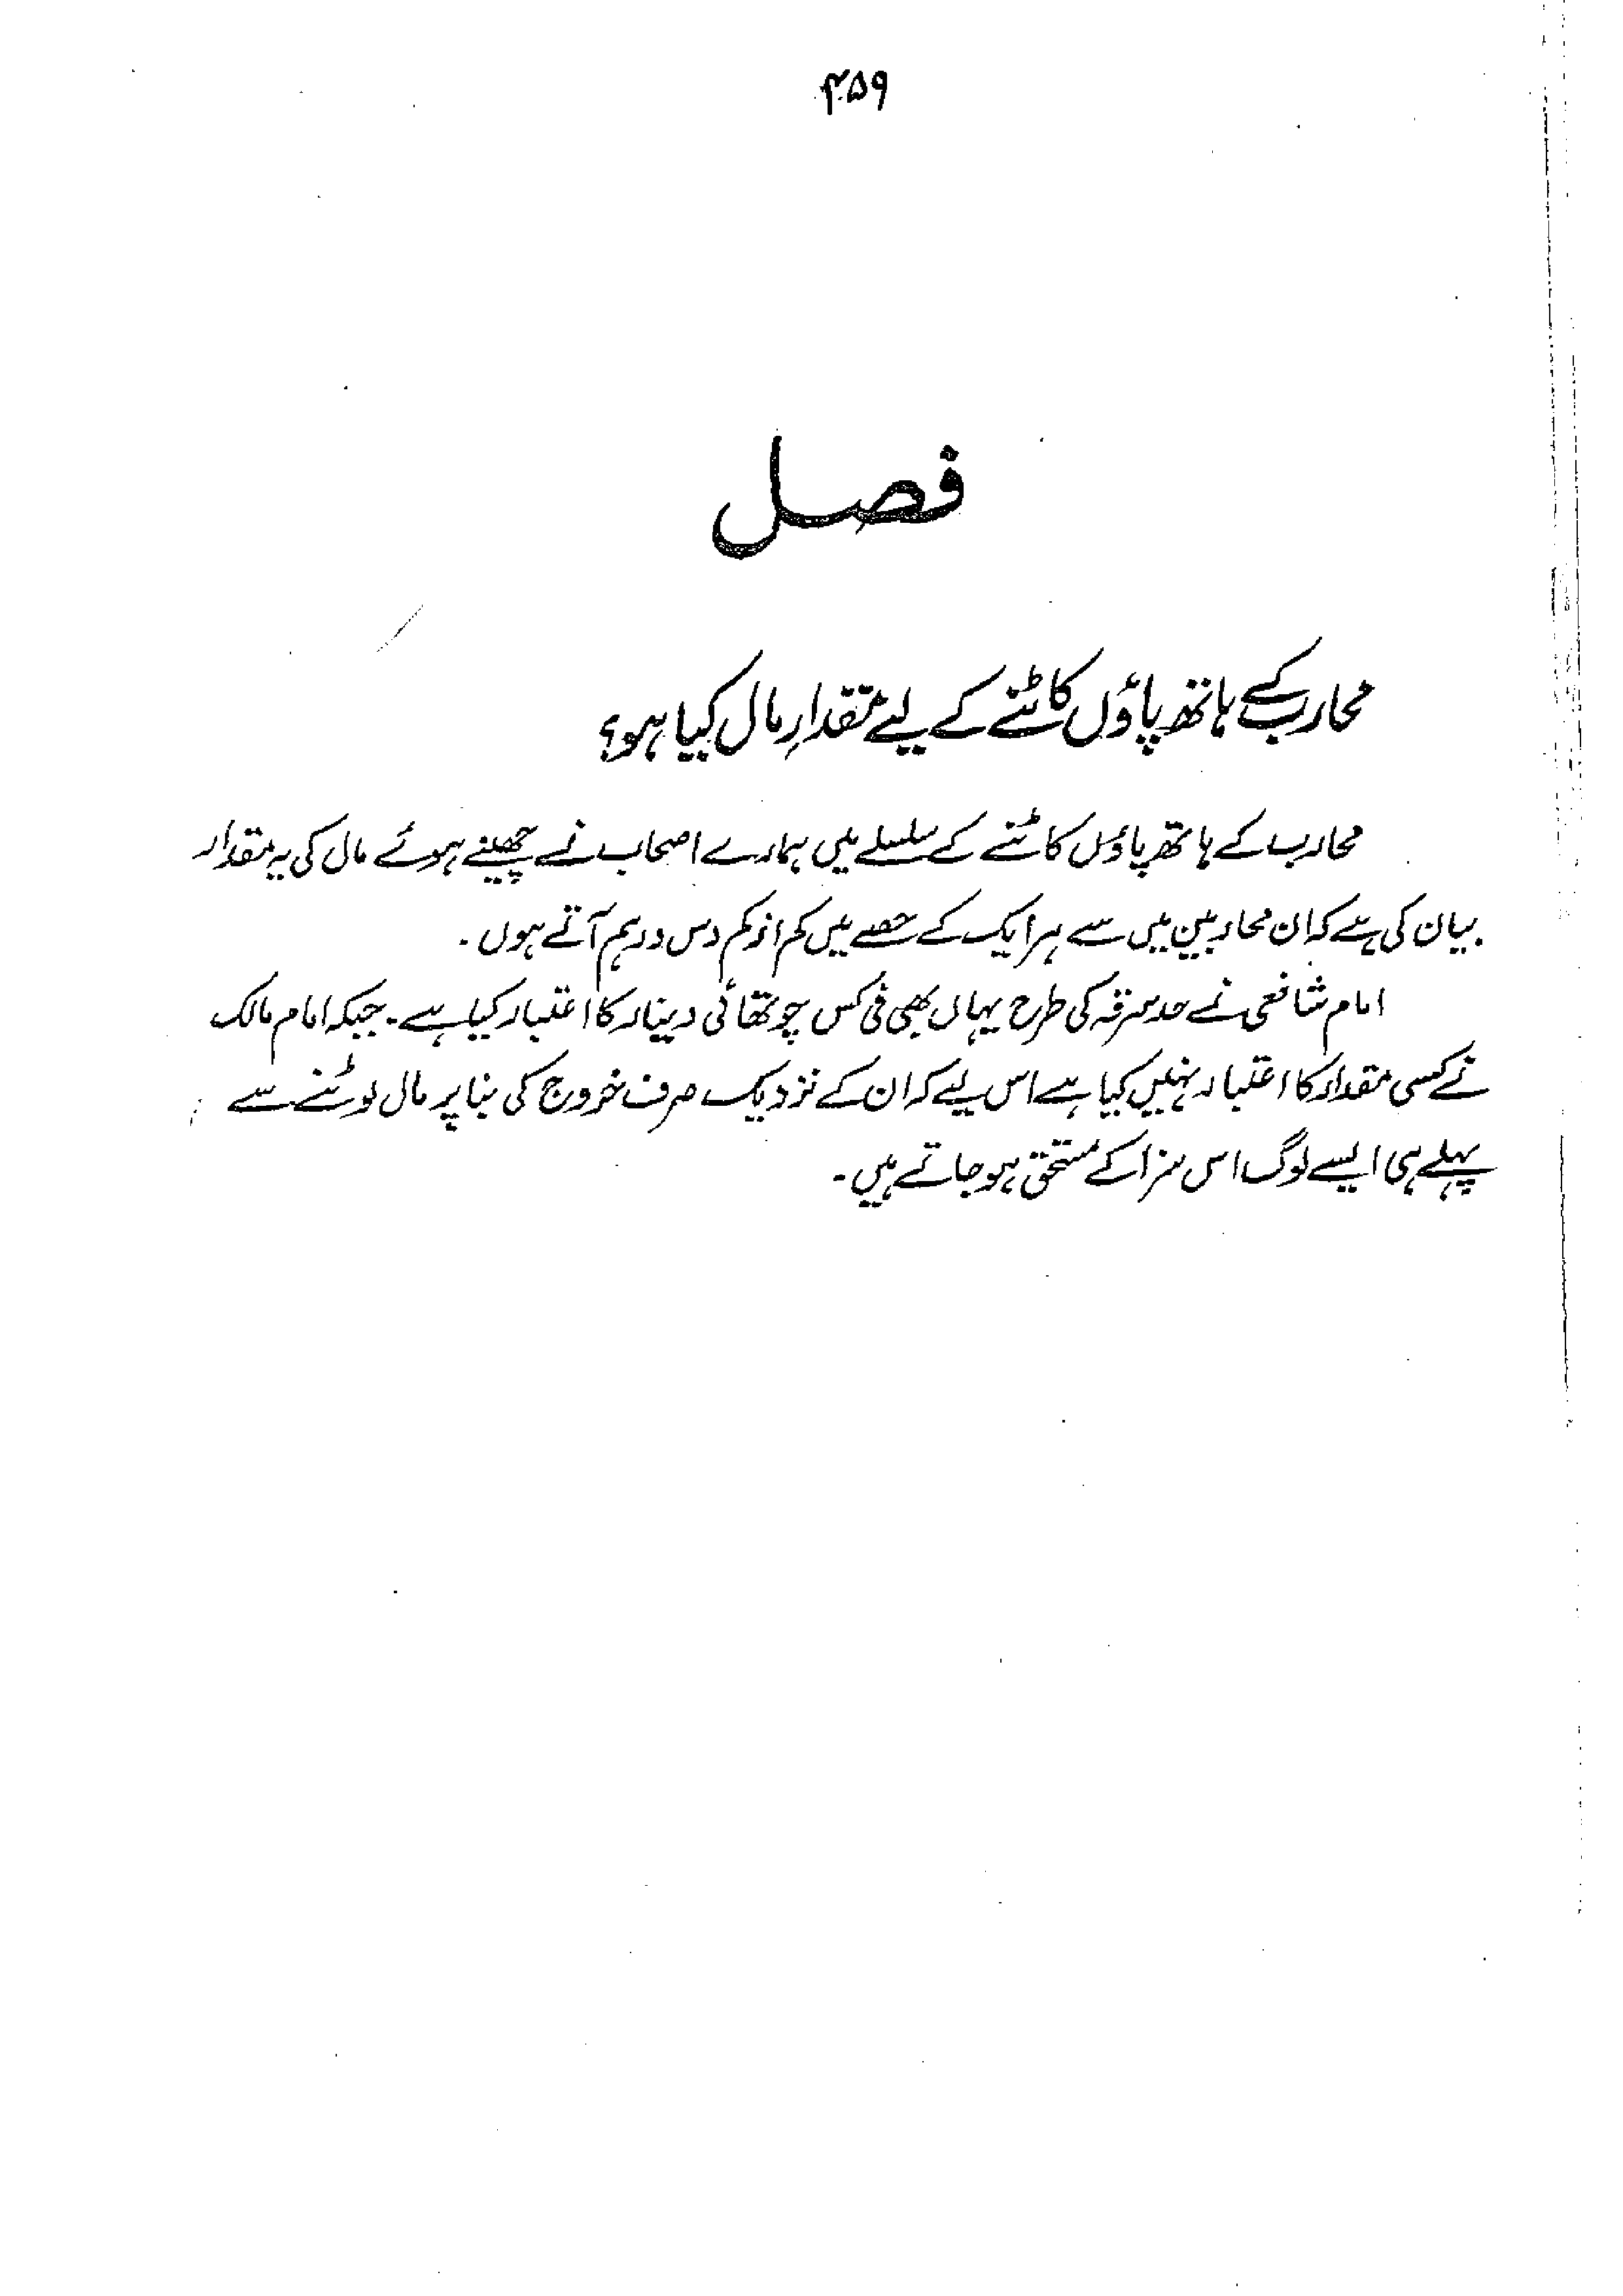 ۴۵۹
فصل
محارب کے ہاتھ پاؤں کاٹنے کے لیے مقدارِ مال کیا ہو؟
محارب کے ہاتھ پاؤں کاٹنے کے سلسلے میں ہمارے اصحاب نے چھینے ہوئے مال کی یہ مقدار
بیان کی ہے کہ ان محاربین میں سے ہر ایک کے حصے میں کم از کم دس درہم آتے ہوں۔
امام شافعی نے حد سرقہ کی طرح یہاں بھی فی کس چوتھائی دینار کا اعتبار کیا ہے۔ جبکہ امام مالک
نے کسی مقدار کا اعتبار نہیں کیا ہے اس لیے کہ ان کے نزدیک صرف خروج کی بنا پر مال لوٹنے سے
پہلے ہی ایسے لوگ اس سزا کے مستحق ہو جاتے ہیں۔